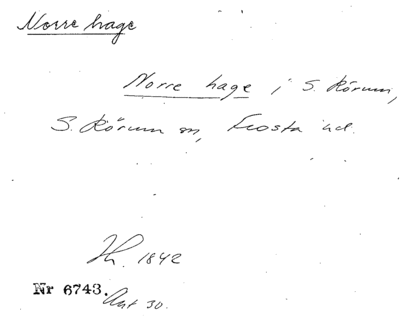 Norre hage
Norre hage i S. Rörum,
S. Rörum sn, Frosta hd.
1842
Nr 6743.
Ant 30.